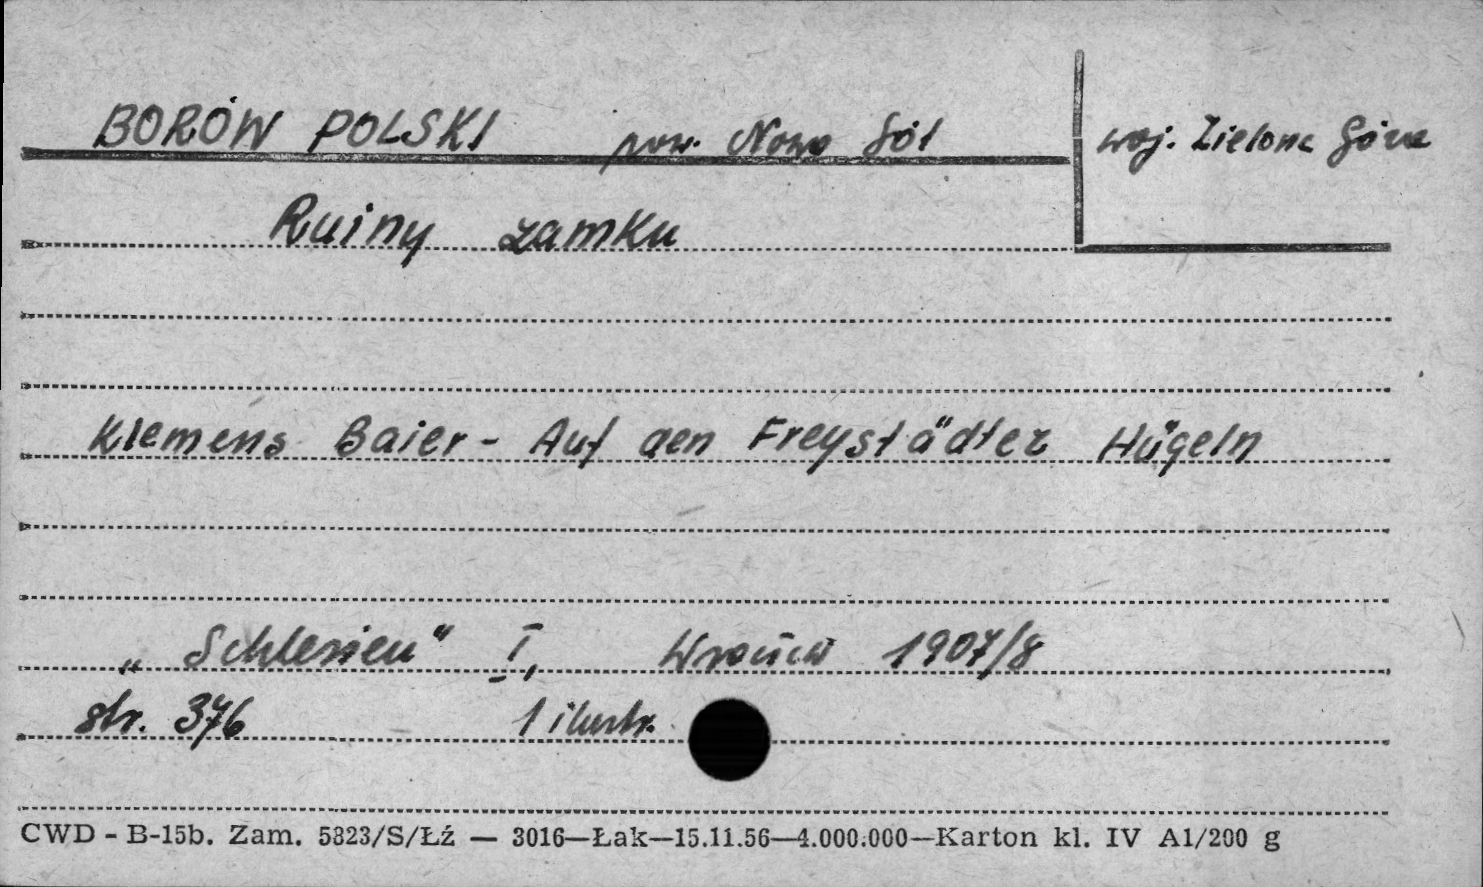 BORÓW POLSKI pow. Nowa Sól woj. Zielona Góra
Ruiny zamku
Klemens Baier - Auf den Freystädter Hügeln
„Schlesien" I, Wrocław 1907/8
str. 376 1 ilustr.
CWD - B-15b. Zam. 5823/S/Łź — 3016—Łak—15.11.56—4.000.000—Karton kl. IV A1/200 g